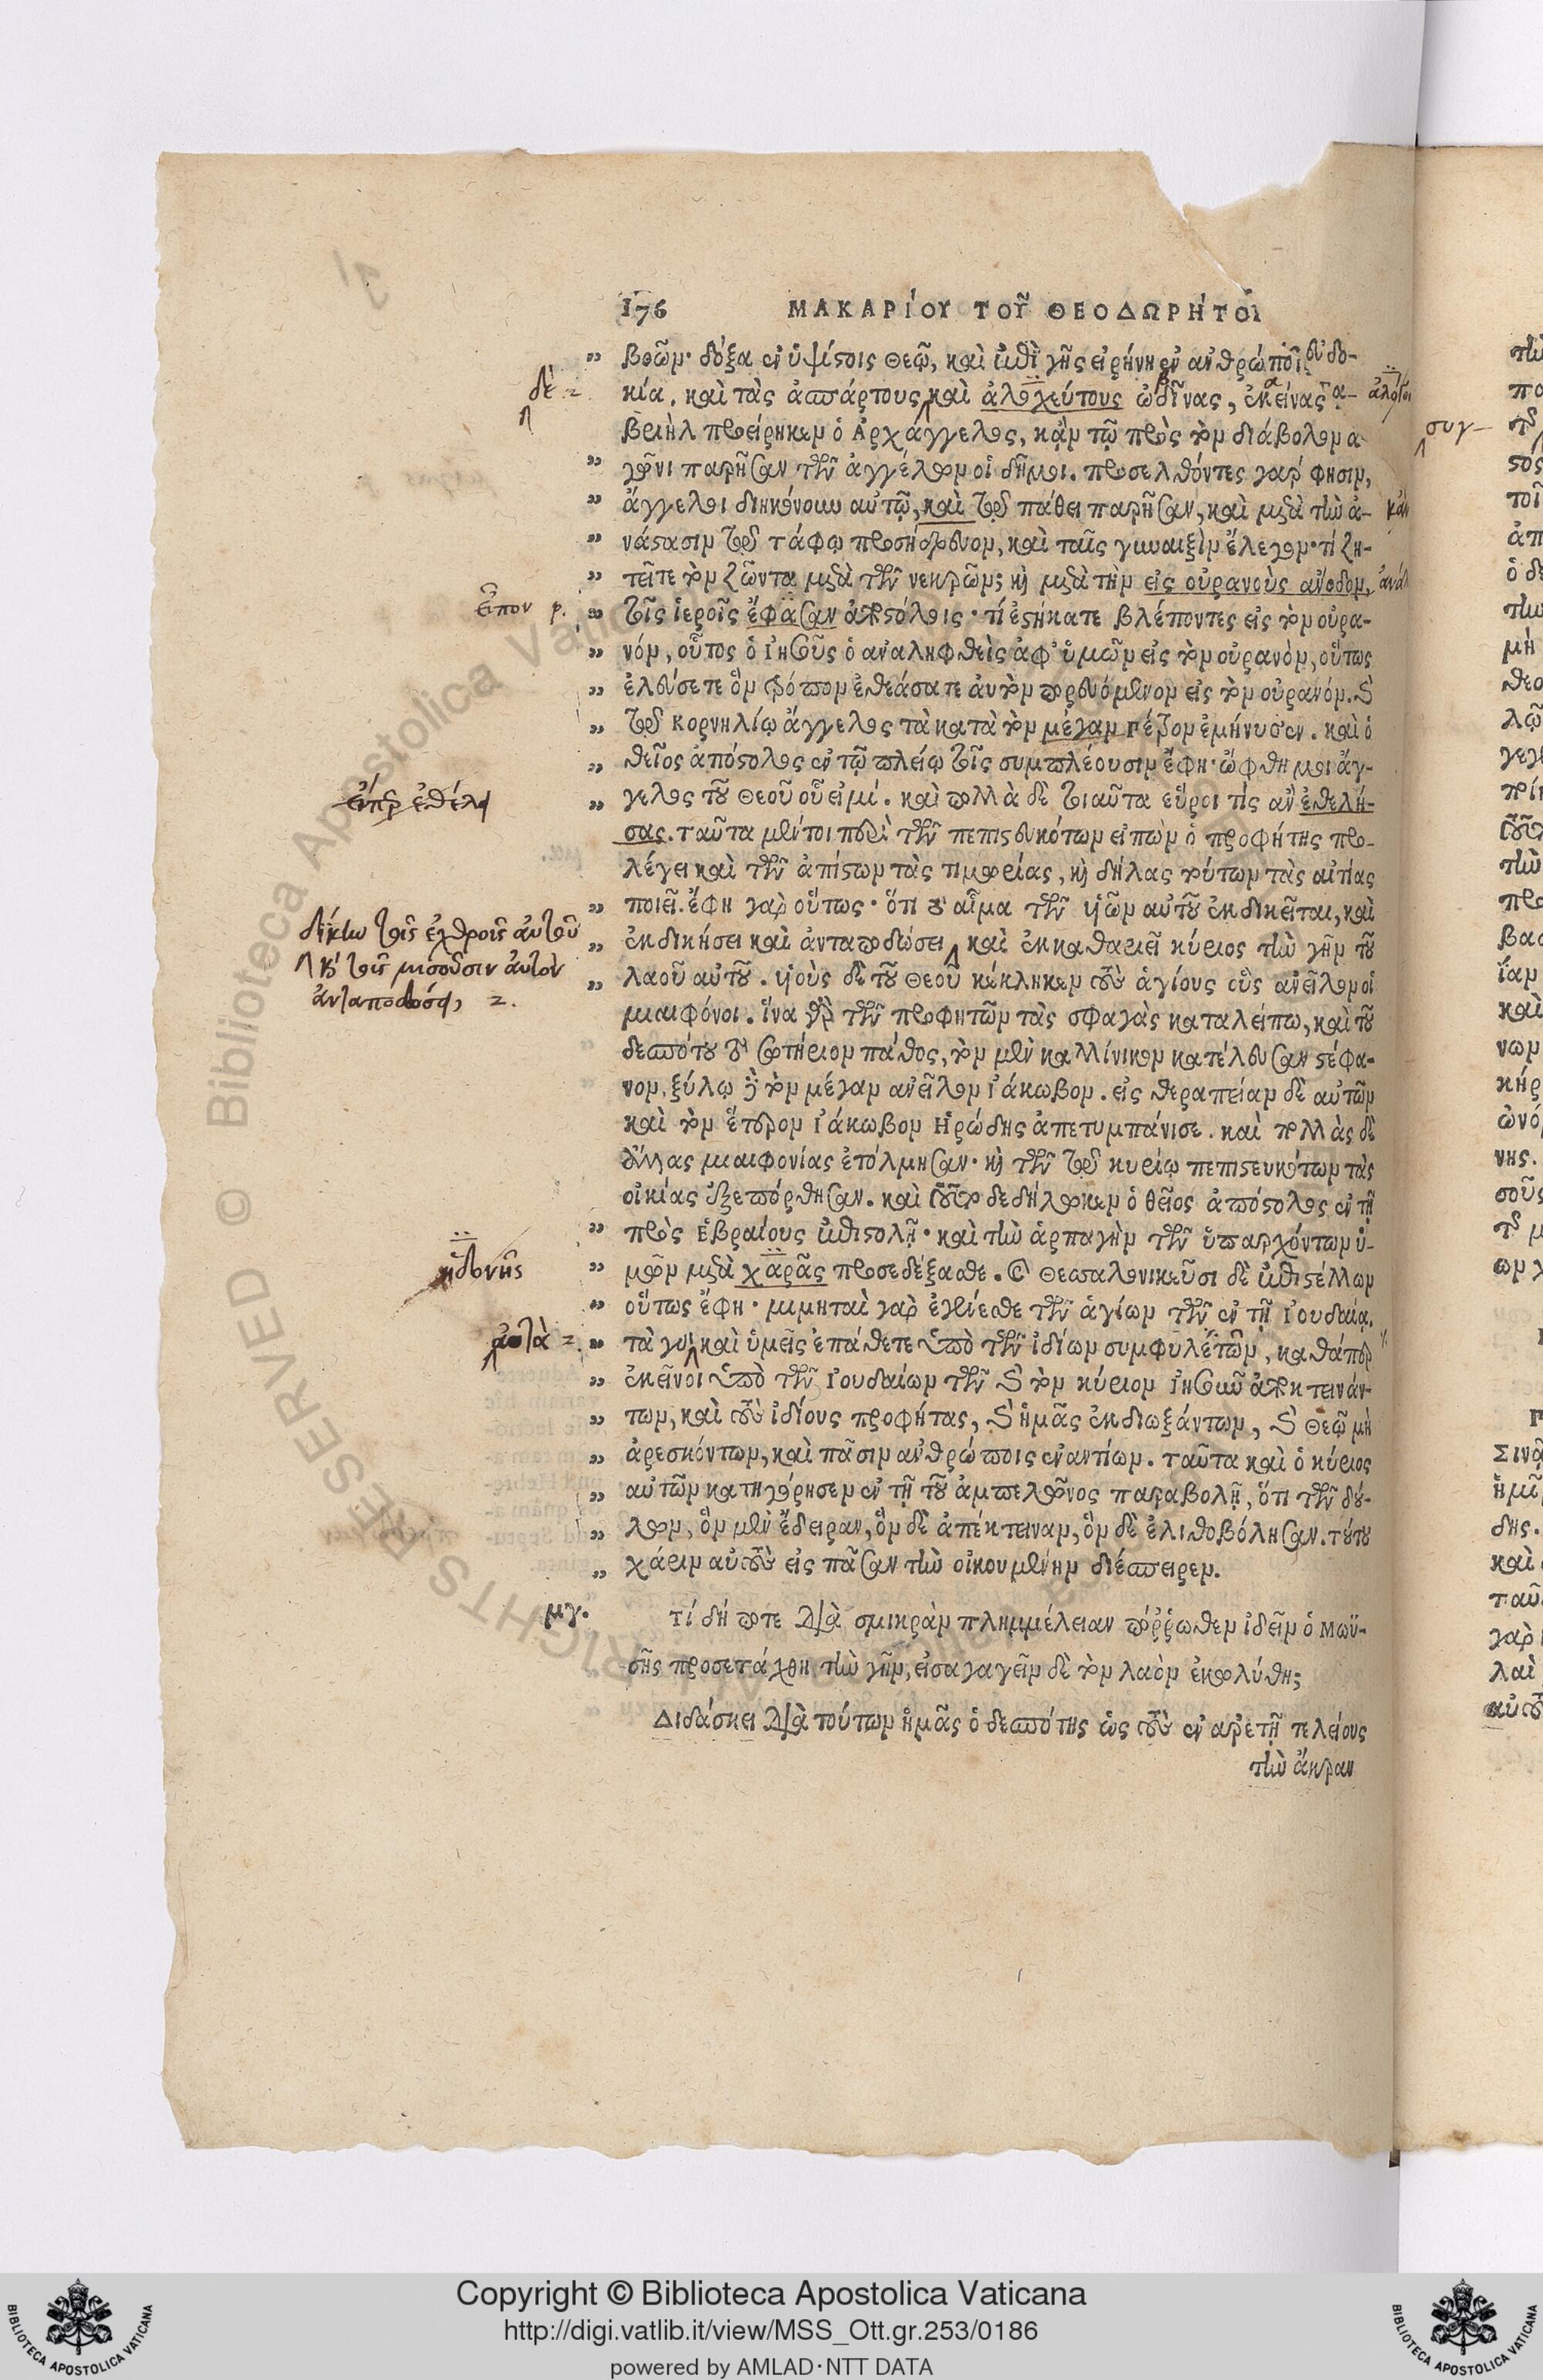 176 ΜΑΚΑΡΊΟΥ ΤΟΥ͂ ΘΕΟΔΩΡΉΤΟΥ
βοῶν· δόξα ἐν ὑψίστοις Θεῷ, καὶ ἐπὶ γῆς εἰρήνη ἐν ἀνθρώποις εὐδο-
δὲ κία. καὶ τὰς ἀσπάρτους καὶ ἀλοχεύτους ὠδῖνας, ἐκείνας ἃς Γα-
βριὴλ προείρηκεν ὁ Ἀρχάγγελος, κἀν τῷ πρὸς τὸν διάβολον ἀ-
γῶνι παρῆσαν τῶν ἀγγέλων οἱ δῆμοι. προσελθόντες γάρ φησιν,
ἄγγελοι διηκόνουν αὐτῷ, καὶ τῷ πάθει παρῆσαν, καὶ μετὰ τὴν ἀ-
νάστασιν τῷ τάφῳ προσήδρευον, καὶ ταῖς γυναιξὶν ἔλεγον· τί ζη-
τεῖτε τὸν ζῶντα μετὰ τῶν νεκρῶν; καὶ μετὰ τὴν εἰς οὐρανοὺς ἄνοδον,
εἶπον ρ. τοῖς ἱεροῖς ἔφασαν ἀποστόλοις· τί ἑστήκατε βλέποντες εἰς τὸν οὐρα-
νόν, οὗτος ὁ Ἰησοῦς ὁ ἀναληφθεὶς ἀφ' ὑμῶν εἰς τὸν οὐρανὸν, οὕτως
ἐλεύσεται ὃν τρόπον ἐθεάσατε αὐτὸν πορευόμενον εἰς τὸν οὐρανόν. καὶ
τῷ Κορνηλίῳ ἄγγελος τὰ κατὰ τὸν μέγαν Πέτρον ἐμήνυσεν. καὶ ὁ
θεῖος ἀπόστολος ἐν τῷ πλοίῳ τοῖς συμπλέουσιν ἔφη· ὤφθη μοι ἄγ-
εἴπερ ἐθέλει γελος τοῦ Θεοῦ οὗ εἰμί. καὶ πολλὰ δὲ τοιαῦτα εὕροι τὶς ἂν ἐθελή-
σας. ταῦτα μέντοι περὶ τῶν πεπιστευκότων εἰπὼν ὁ προφήτης προ-
λέγει καὶ τῶν ἀπίστων τὰς τιμωρίας, καὶ δήλας τούτων τὰς αἰτίας
ποιεῖ. ἔφη γὰρ οὕτως· ὅτι τὸ αἷμα τῶν υἱῶν αὐτοῦ ἐκδικεῖται, καὶ
δίκην τοῖς ἐχθροῖς αὐτοῦ
ἐκδικήσει καὶ ἀνταποδώσει καὶ ἐκκαθαριεῖ κύριος τὴν γῆν τοῦ
καὶ τοῖς μισοῦσιν αὐτὸν
ἀνταποδώσει,
λαοῦ αὐτοῦ. υἱοὺς δὲ τοῦ Θεοῦ κέκληκεν τοὺς ἁγίους οὓς ἀνεῖλον οἱ
μιαιφόνοι. ἵνα γὰρ τῶν προφητῶν τὰς σφαγὰς καταλείπω, καὶ τοῦ
δεσπότου τὸ σωτήριον πάθος, τὸν μὲν καλλίνικον κατέλευσαν στέφα-
νον, ξύλῳ δὲ τὸν μέγαν ἀνεῖλον Ἰάκωβον. εἰς θεραπείαν δὲ αὐτῶν
καὶ τὸν ἕτερον Ἰάκωβον Ἡρώδης ἀπετυμπάνισε. καὶ πολλὰς δὲ
ἄλλας μιαιφονίας ἐτόλμησαν· καὶ τῶν τῷ κυρίῳ πεπιστευκότων τὰς
οἰκίας ἐξεπόρθησαν. καὶ τοῦτο δεδήλωκεν ὁ θεῖος ἀπόστολος ἐν τῇ
πρὸς Ἑβραίους ἐπιστολῇ· καὶ τὴν ἁρπαγὴν τῶν ὑπαρχόντων ὑ-
ἡδονῆς μῶν μετὰ χαρᾶς προσεδέξασθε. καὶ Θεσσαλονικεῦσι δὲ ἐπιστέλλων
οὕτως ἔφη· μιμηταὶ γὰρ ἐγένεσθε τῶν ἁγίων τῶν ἐν τῇ Ἰουδαίᾳ.
αὐτὰ τὰ γὰρ καὶ ὑμεῖς ἐπάθετε ὑπὸ τῶν ἰδίων συμφυλετῶν, καθάπερ
ἐκεῖνοι ὑπὸ τῶν Ἰουδαίων τῶν καὶ τὸν κύριον Ἰησοῦν ἀποκτεινάν-
των, καὶ τοὺς ἰδίους προφήτας, καὶ ἡμᾶς ἐκδιωξάντων, καὶ Θεῷ μὴ
ἀρεσκόντων, καὶ πᾶσιν ἀνθρώποις ἐναντίων. ταῦτα καὶ ὁ κύριος
αὐτῶν κατηγόρησεν ἐν τῇ τοῦ ἀμπελῶνος παραβολῇ, ὅτι τῶν δού-
λων, ὃν μὲν ἔδειραν, ὃν δὲ ἀπέκτειναν, ὃν δὲ ἐλιθοβόλησαν. τούτου
χάριν αὐτοὺς εἰς πᾶσαν τὴν οἰκουμένην διέσπειρεν.
μγ. Τί δή ποτε διὰ σμικρὰν πλημμέλειαν πόρρωθεν ἰδεῖν ὁ Μωϋ-
σῆς προσετάχθη τὴν γῆν, εἰσαγαγεῖν δὲ τὸν λαὸν ἐκωλύθη;
Διδάσκει διὰ τούτων ἡμᾶς ὁ δεσπότης ὡς τοὺς ἐν ἀρετῇ τελείους
τὴν ἄκραν
συγ-
© Biblioteca Apostolica Vaticana
ALL RIGHTS RESERVED
Copyright © Biblioteca Apostolica Vaticana
http://digi.vatlib.it/view/MSS_Ott.gr.253/0186
powered by AMLAD·NTT DATA
BIBLIOTECA APOSTOLICA VATICANA
BIBLIOTECA APOSTOLICA VATICANA